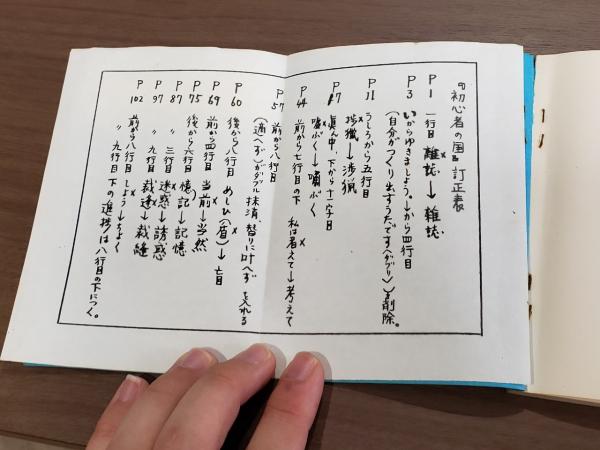 『初心者の国』訂正表
P1 一行目 離誌→雑誌
P3 いからゆきましょう。→から四行目
(自分がつくり出すうたですヘダブリ)を削除。
P11 うしろから五行目
捗猟→渉猟
P17 真ん中、下から十一字目
嘘ぶく→嘯ぶく
P44 前から七行目の下 私は者えて→考えて
P57 前から八行目
(過へず)がダブル 抹消、替りに叶へず を入れる
P60 後から八行目 めしひ(盾)→盲目
P69 前から四行目 当前→当然
P75 後から六行目 憶記→記憶
P87 〃 三行目 迷惑→誘惑
P97 〃 九行目 裁逢→裁縫
P102 前から八行目 しょう→ちょく
〃 九行目 下の進捗は八行目の下につく。